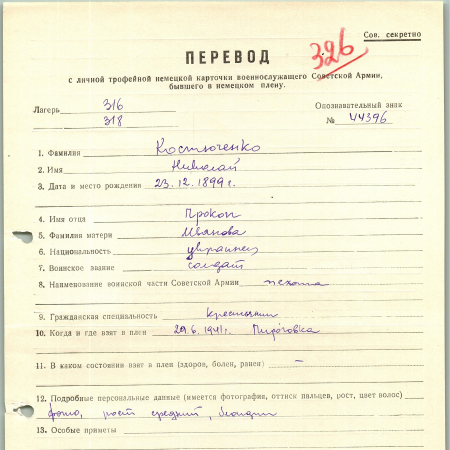 Сов. секретно
326
ПЕРЕВОД
с личной трофейной немецкой карточки военнослужащего Советской Армии,
бывшего в немецком плену.
Лагерь 316
318
Опознавательный знак
№ 44396
1. Фамилия Костюченко
2. Имя Николай
3. Дата и место рождения 23.12.1899г.
4. Имя отца Прокоп
5. Фамилия матери Иванова
6. Национальность украинец
7. Воинское звание солдат
8. Наименование воинской части Советской Армии пехота
9. Гражданская специальность крестьянин
10. Когда и где взят в плен 29.6.1941г. Пироговка
11. В каком состоянии взят в плен (здоров, болен, ранен) —
12. Подробные персональные данные (имеется фотография, оттиск пальцев, рост, цвет волос)
фото, рост средний, блондин
13. Особые приметы